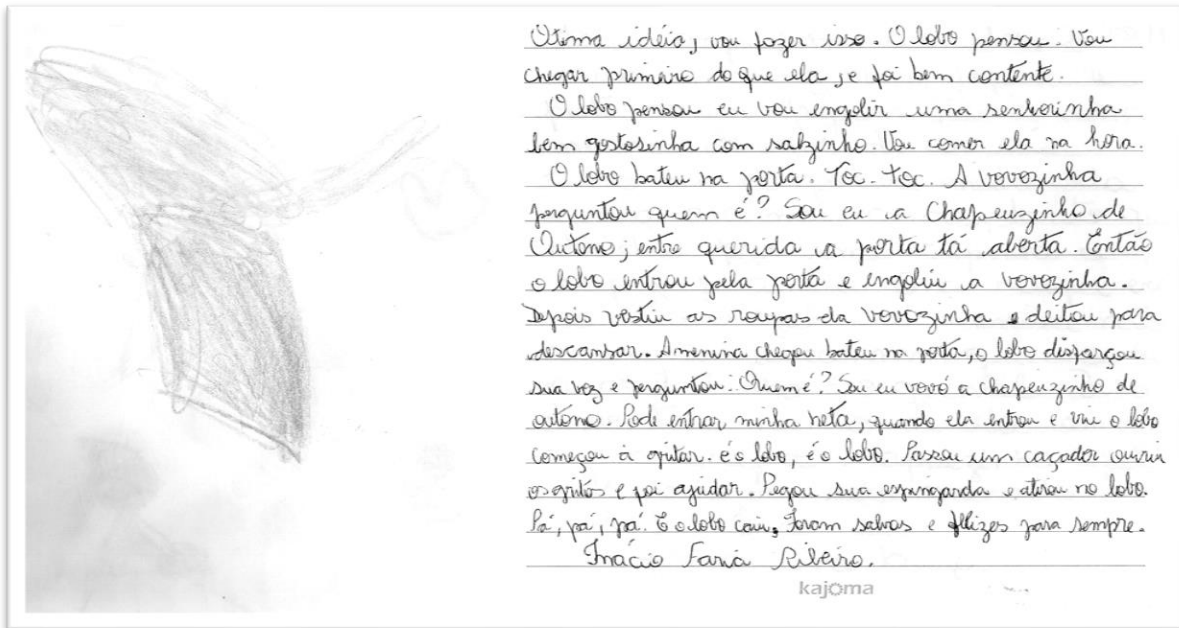 Otima idéia, vou fazer isso. O lobo pensou. Vou
chegar primeiro do que ela, e foi bem contente.
O lobo pensou eu vou engolir uma senhorinha
bem gostosinha com salzinho. Vou comer ela na hora.
O lobo bateu na porta. Toc. Toc. A vovozinha
perguntou quem é? Sou eu a Chapeuzinho de
Outono; entre querida a porta tá aberta. Então
o lobo entrou pela porta e engoliu a vovozinha.
Depois vestiu as roupas da vovozinha e deitou para
descansar. A menina chegou bateu na porta, o lobo disfarçou
sua voz e perguntou: Quem é? Sou eu vovó a chapeuzinho de
outono. Pode entrar minha neta, quando ela entrou e viu o lobo
começou à gritar. é o lobo, é o lobo. Passou um caçador ouviu
os gritos e foi ajudar. Pegou sua espingarda e atirou no lobo.
Pá, pá, pá. E o lobo caiu. Foram salvas e felizes para sempre.
Inácio Faria Ribeiro.
kajoma